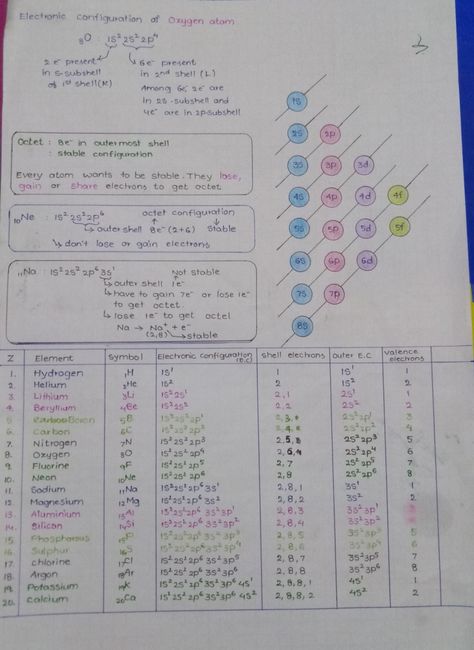 Electronic configuration of Oxygen atom
₈O : 1s² 2s² 2p⁴
2e⁻ present in s-subshell of 1st shell (K)
6e⁻ present in 2nd shell (L)
Among 6, 2e⁻ are in 2s-subshell and 4e⁻ are in 2p subshell
1s
2s 2p
3s 3p 3d
4s 4p 4d 4f
5s 5p 5d 5f
6s 6p 6d
7s 7p
8s
Octet : 8e⁻ in outermost shell
: stable configuration
Every atom wants to be stable. They lose,
gain or share electrons to get octet
₁₀Ne : 1s² 2s² 2p⁶ octet configuration
outer shell 8e⁻ (2+6) stable
don't lose or gain electrons
₁₁Na : 1s² 2s² 2p⁶ 3s¹ Not stable
outer shell 1e⁻
have to gain 7e⁻ or lose 1e⁻
to get octet
lose 1e⁻ to get octet
Na → Na⁺ + e⁻
(2,8) stable
Z Element Symbol Electronic configuration (E.C) Shell electrons Outer E.C Valence electrons
1. Hydrogen ₁H 1s¹ 1 1s¹ 1
2. Helium ₂He 1s² 2 1s² 2
3. Lithium ₃Li 1s² 2s¹ 2,1 2s¹ 1
4. Beryllium ₄Be 1s² 2s² 2,2 2s² 2
5. Boron ₅B 1s² 2s² 2p¹ 2,3 2s² 2p¹ 3
6. Carbon ₆C 1s² 2s² 2p² 2,4 2s² 2p² 4
7. Nitrogen ₇N 1s² 2s² 2p³ 2,5 2s² 2p³ 5
8. Oxygen ₈O 1s² 2s² 2p⁴ 2,6 2s² 2p⁴ 6
9. Fluorine ₉F 1s² 2s² 2p⁵ 2,7 2s² 2p⁵ 7
10. Neon ₁₀Ne 1s² 2s² 2p⁶ 2,8 2s² 2p⁶ 8
11. Sodium ₁₁Na 1s² 2s² 2p⁶ 3s¹ 2,8,1 3s¹ 1
12. Magnesium ₁₂Mg 1s² 2s² 2p⁶ 3s² 2,8,2 3s² 2
13. Aluminium ₁₃Al 1s² 2s² 2p⁶ 3s² 3p¹ 2,8,3 3s² 3p¹ 3
14. Silicon ₁₄Si 1s² 2s² 2p⁶ 3s² 3p² 2,8,4 3s² 3p²
15. Phosphorous ₁₅P 1s² 2s² 2p⁶ 3s² 3p³ 2,8,5 3s² 3p³ 5
16. Sulphur ₁₆S 1s² 2s² 2p⁶ 3s² 3p⁴ 2,8,6 3s² 3p⁴ 6
17. chlorine ₁₇Cl 1s² 2s² 2p⁶ 3s² 3p⁵ 2,8,7 3s² 3p⁵ 7
18. Argon ₁₈Ar 1s² 2s² 2p⁶ 3s² 3p⁶ 2,8,8 3s² 3p⁶ 8
19. Potassium ₁₉K 1s² 2s² 2p⁶ 3s² 3p⁶ 4s¹ 2,8,8,1 4s¹ 1
20. Calcium ₂₀Ca 1s² 2s² 2p⁶ 3s² 3p⁶ 4s² 2,8,8,2 4s² 2